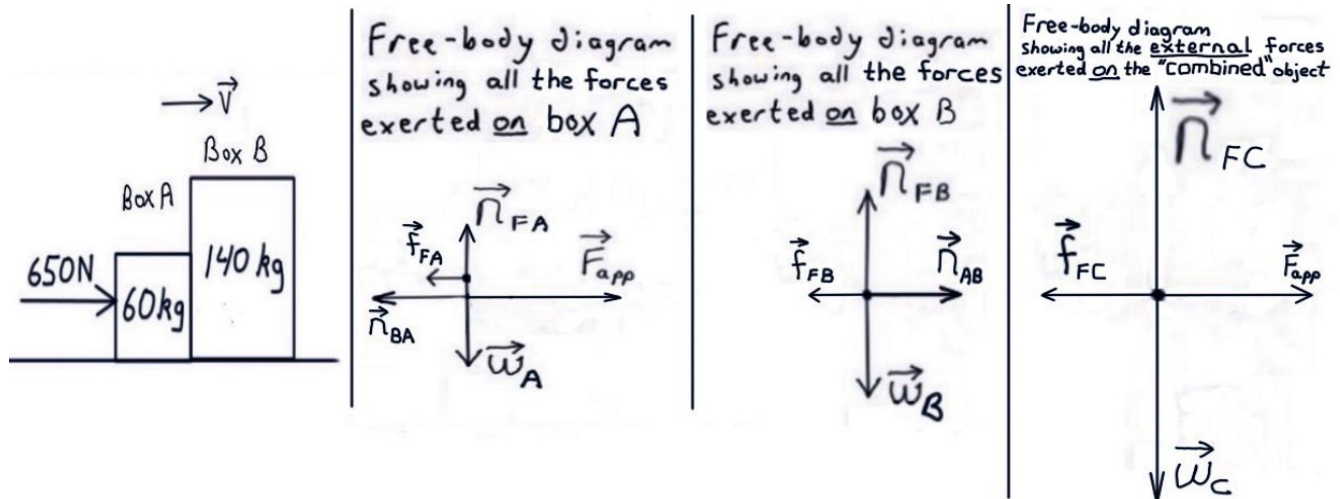 V
Box B
Box A
650N
60kg
140 kg
Free-body diagram
showing all the forces
exerted on box A
n FA
f FA
F app
n BA
w A
Free-body diagram
showing all the forces
exerted on box B
n FB
f FB
n AB
w B
Free-body diagram
showing all the external forces
exerted on the "combined" object
n FC
f FC
F app
w C